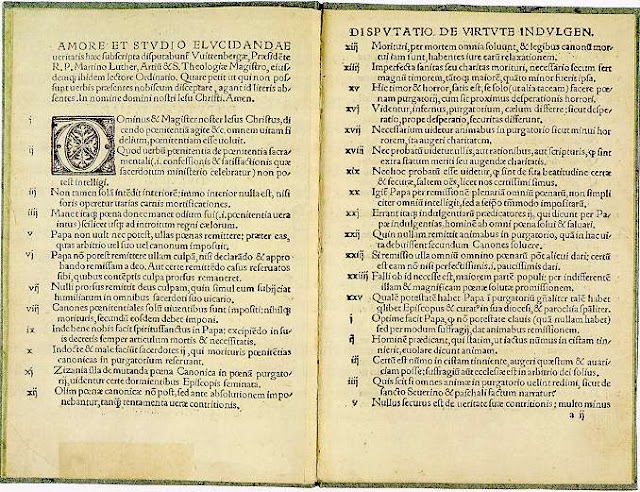 AMORE ET STVDIO ELVCIDANDAE
ueritatis hæc subscripta disputabunť Vuittenbergæ, Præsidẽte
R. P. Martino Luther, Artiũ & S. Theologiæ Magistro, eius-
demq; ibidem lectore Ordinario. Quare petit ut qui non pos-
sunt uerbis præsentes nobiscum disceptare, agant id literis ab-
sentes. In nomine domini nostri Iesu Christi. Amen.
i Dominus & Magister noster Iesus Christus, di-
cendo pœnitentiã agite &c. omnem uitam fi
delium, pœnitentiam esse uoluit.
ij Quod uerbũ pœnitentia de pœnitentia sacra-
mentali (.i. confessionis & satisfactionis quæ
sacerdotum ministerio celebratur) non po-
test intelligi.
iij Non tamen solã intẽdit interiorẽ: immo interior nulla est, nisi
foris operetur uarias carnis mortificationes.
iiij Manet itaq; pœna donec manet odium sui (.i. pœnitentia uera
intus) scilicet usq; ad introitum regni cælorum.
v Papa non uult nec potest, ullas pœnas remittere: præter eas,
quas arbitrio uel suo uel canonum imposuit.
vj Papa nõ potest remittere ullam culpã, nisi declarãdo & appro
bando remissam a deo. Aut certe remittẽdo casus reseruatos
sibi, quibus contẽptis culpa prorsus remaneret.
vij Nulli prorsus remittit deus culpam, quin simul eum subijciat
humiliatum in omnibus sacerdoti suo uicario.
viij Canones pœnitentiales solũ uiuentibus sunt impositi: nihilq;
morituris, secundũ eosdem debet imponi.
ix Inde bene nobis facit spiritussanctus in Papa: excipiẽdo in su-
is decretis semper articulum mortis & necessitatis.
x Indocte & male faciũt sacerdotes ij, qui morituris pœnitẽtias
canonicas in purgatorium reseruant.
xj Zizania illa de mutanda pœna Canonica in pœnã purgato-
rij, uidentur certe dormientibus Episcopis seminata.
xij Olim pœnæ canonicæ nõ post, sed ante absolutionem impo
nebantur, tanq̃ tentamenta ueræ contritionis.
DISPVTATIO DE VIRTVTE INDVLGEN.
xiij Morituri, per mortem omnia soluunt, & legibus canonũ mor-
tui iam sunt, habentes iure earũ relaxationem.
xiiij Imperfecta sanitas seu charitas morituri, necessario secum fert
magnũ timorem, tãtoq; maiorẽ, quãto minor fuerit ipsa.
xv Hic timor & horror, satis est, se solo (ut alia taceam) facere pœ-
nam purgatorij, cum sit proximus desperationis horrori.
xvj Videntur, infernus, purgatorium, cælum differre: sicut despe-
ratio, prope desperatio, securitas differunt.
xvij Necessarium uidetur animabus in purgatorio sicut minui hor
rorem, ita augeri charitatem.
xviij Nec probatũ uidetur ullis, aut rationibus, aut scripturis, q̃ sint
extra statum meriti seu augendæ charitatis.
xix Nec hoc probatũ esse uidetur, q̃ sint de sua beatitudine certæ
& securæ, saltem oẽs, licet nos certissimi simus.
xx Igiť Papa per remissionẽ plenariã omniũ pœnarũ, non simpli
citer omniũ intelligit, sed a seipso tm̃modo impositarũ.
xxj Errant itaq; indulgẽtiarũ prædicatores ij, qui dicunt per Pa-
pæ indulgentias, hominẽ ab omni pœna solui & saluari.
xxij Quin nullam remittit animabus in purgatorio, quã in hac ui-
ta debuissent secundum Canones soluere.
xxiij Si remissio ulla omniũ omnino pœnarũ põt alicui dari; certũ
est eam nõ nisi perfectissimis, .i. paucissimis dari.
xxiiij Falli ob id necesse est, maiorem partẽ populi: per indifferentẽ
illam & magnificam pœnæ solutæ promissionem.
xxv Qualẽ potestatẽ habet Papa ĩ purgatoriũ gñaliter talẽ habet
q̃libet Episcopus & curatus in sua diœcesi, & parochia sp̃aliter.
i Optime facit Papa, q̃ nõ potestate clauis (quã nullam habet)
sed per modum suffragij, dat animabus remissionem.
ij Hominẽ prædicant, qui statim, ut iactus nũmus in cistam tin-
nierit, euolare dicunt animam.
iij Certũ est nũmo in cistam tinniente, augeri quæstum & auari-
ciam posse: suffragiũ aũt ecclesiæ est in arbitrio dei solius.
iiij Quis scit si omnes animæ in purgatorio uelint redimi, sicut de
sancto Seuerino & paschali factum narratur.
v Nullus securus est de ueritate suæ contritionis; multo minus
a ij